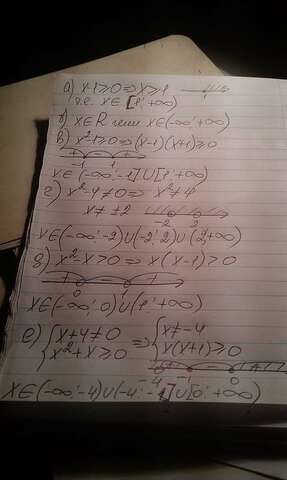 а) x-1≥0⇒x≥1
1
т.е. x∈[1;+∞)
б) x∈R или x∈(-∞;+∞)
в) x²-1≥0⇒(x-1)(x+1)≥0
+ - +
-1 1
x∈(-∞;-1]∪[1;+∞)
г) x²-4≠0⇒x²≠4
x≠±2
-2 2
x∈(-∞;-2)∪(-2;2)∪(2;+∞)
д) x²-x>0⇒x(x-1)>0
+ - +
0 1
x∈(-∞;0)∪(1;+∞)
е) {x+4≠0 ⇒ {x≠-4
{x²+x≥0 {x(x+1)≥0
-4 -1 0
x∈(-∞;-4)∪(-4;-1]∪[0;+∞)